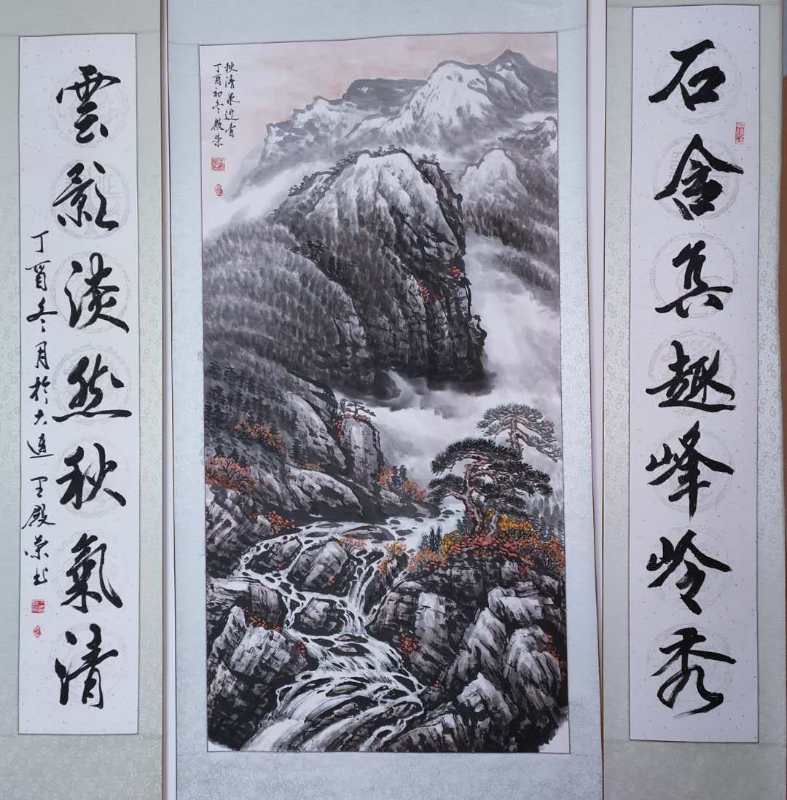 石含真趣峰岭秀
清泉
丁酉初冬殿荣
雲影淡然秋氣清
丁酉冬月於大连王殿荣书